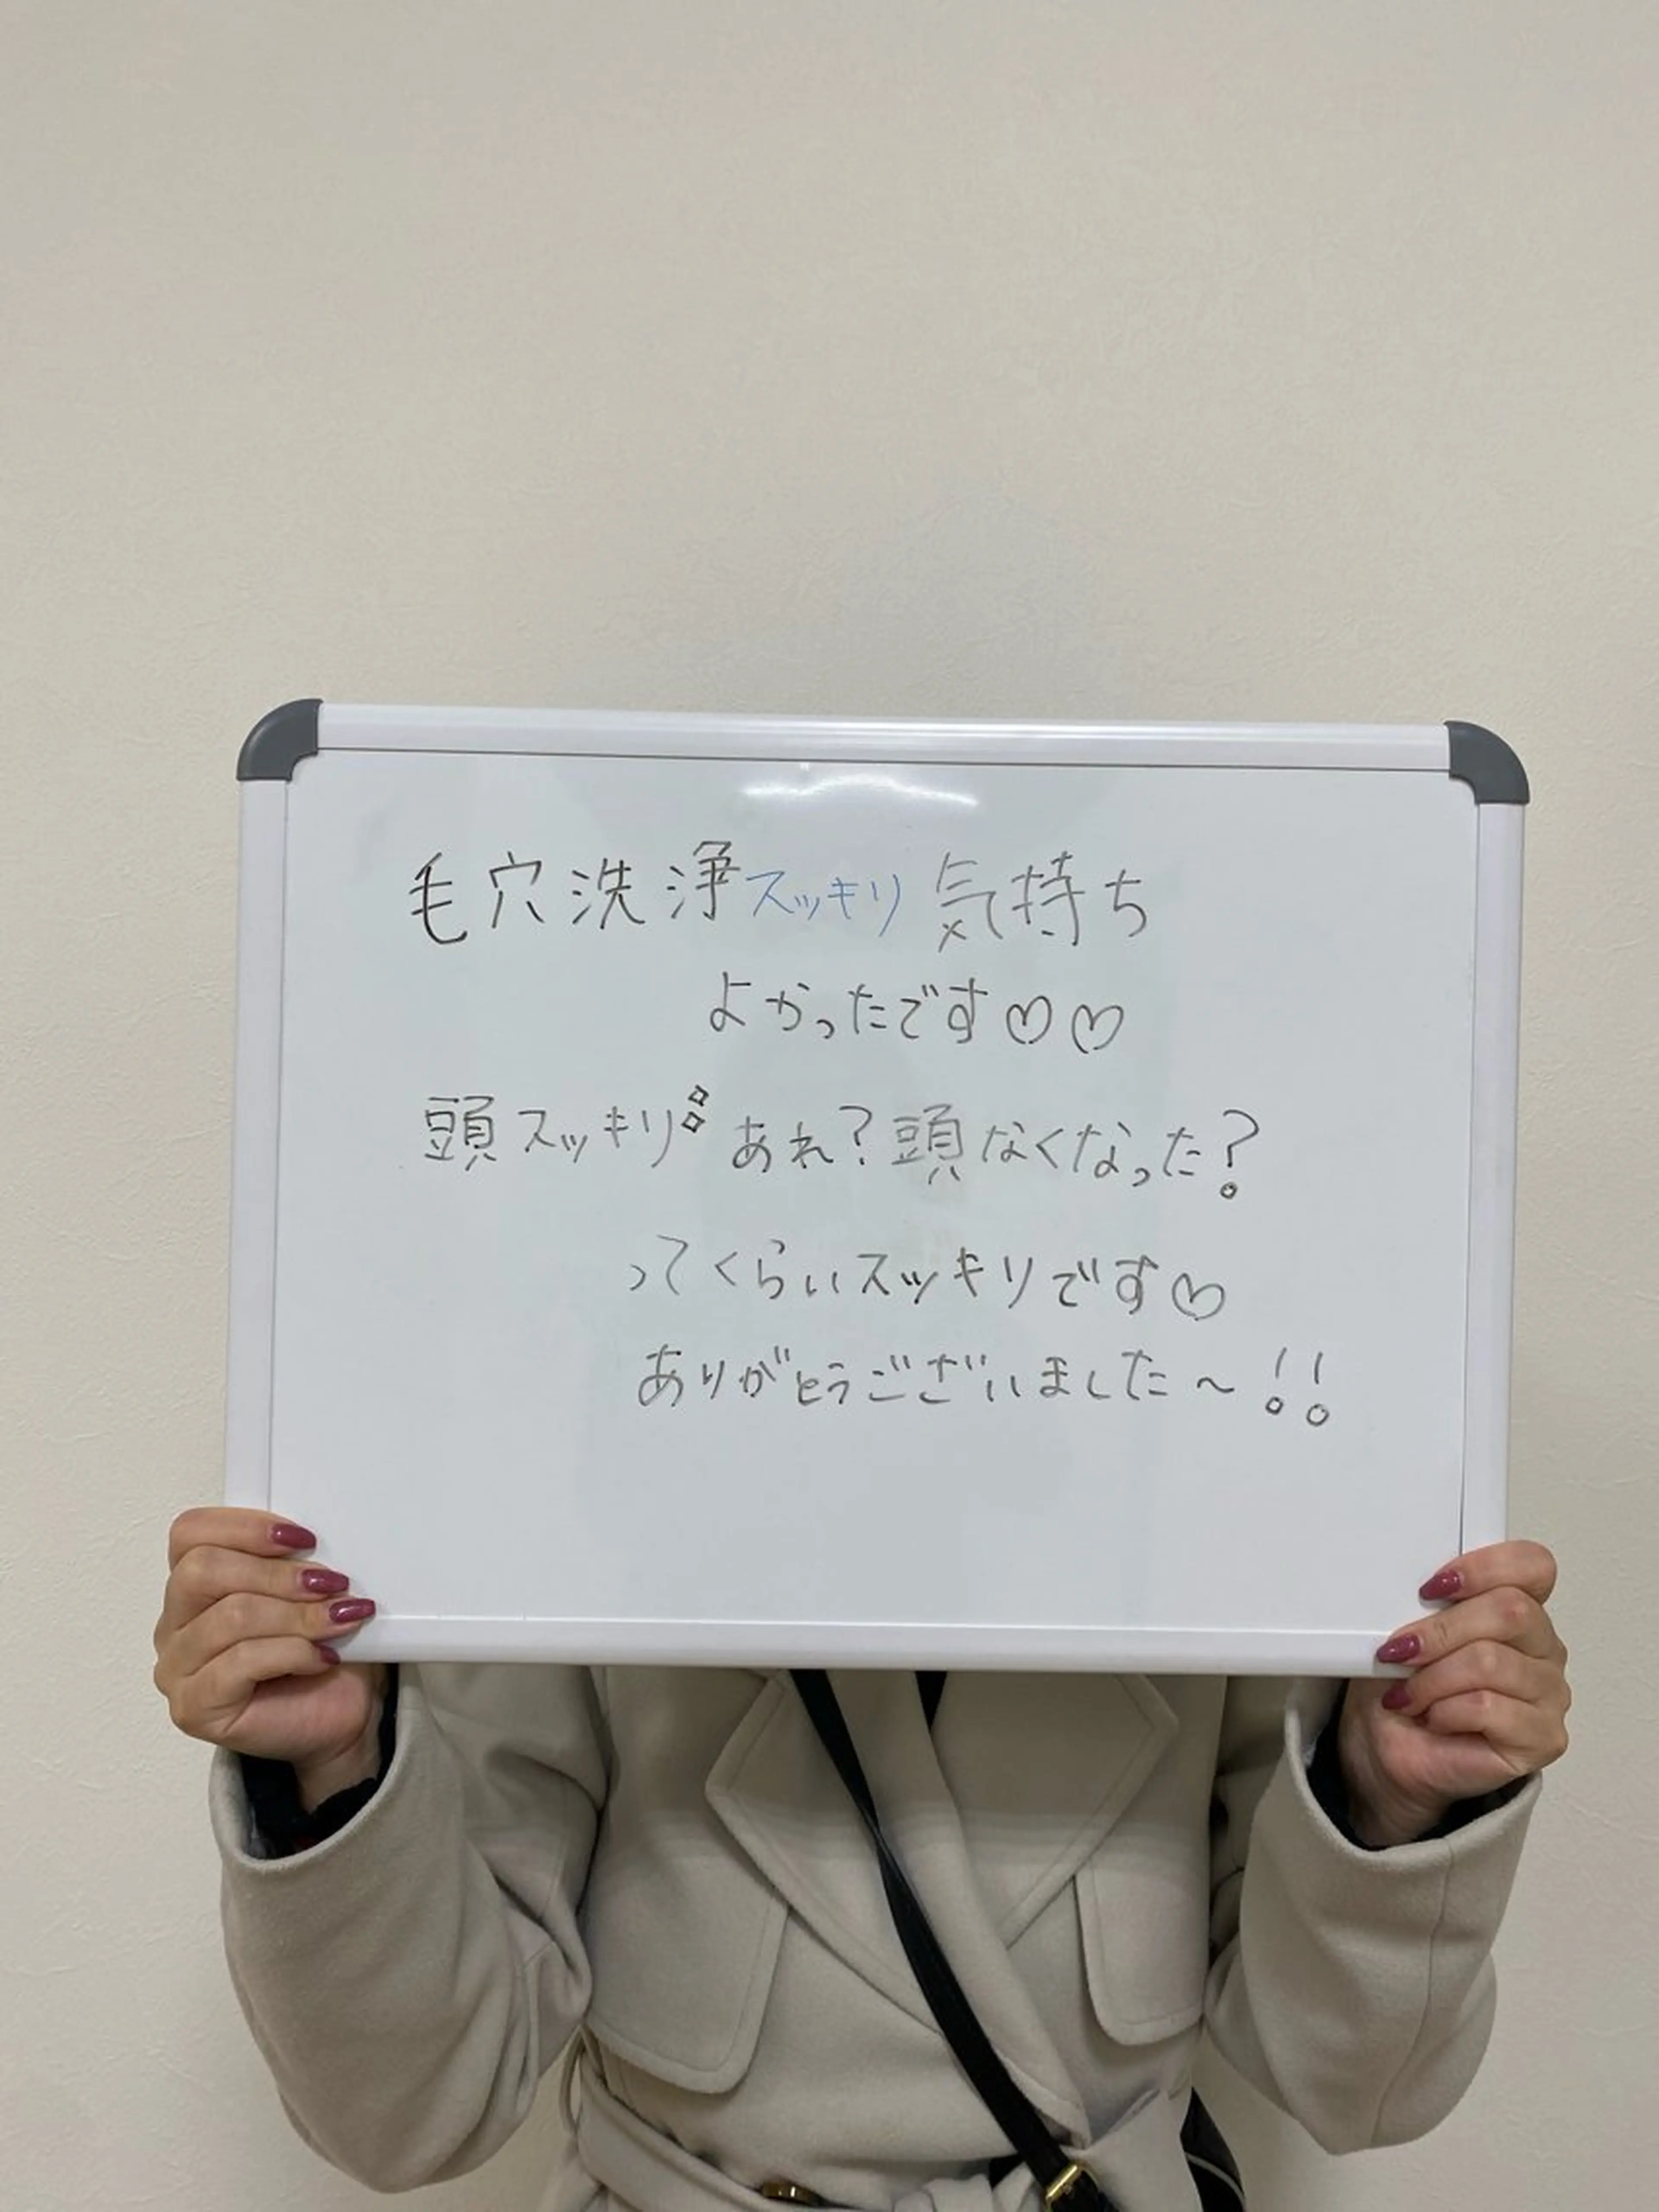 毛穴洗浄スッキリ気持ち
よかったです♡♡
頭スッキリ✧✧あれ?頭なくなった?
ってくらいスッキリです♡
ありがとうございました〜!!